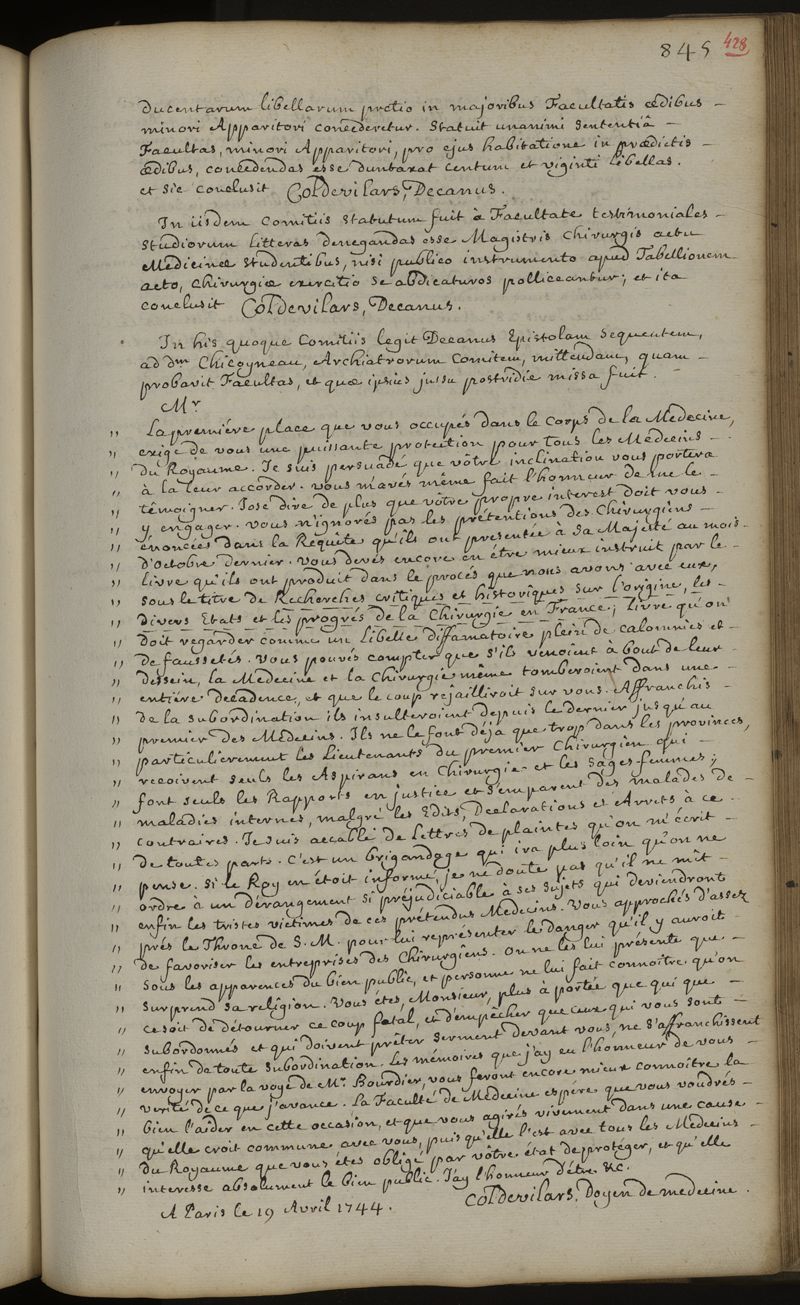 845 428
ducentarum libellarum pretio in majoribus Facultatis ædibus –
minori Apparitori concederetur. Statuit unanimi sententiâ –
Facultas, minori Apparitori, pro ejus habitatione in prædictis –
ædibus, concedendas esse duntaxat centum et viginti libellas.
et sic conclusit Col De vilars, Decanus.
In iisdem Comitiis statutum fuit à Facultate testimoniales –
studiorum litteras denegandas esse Magistris Chirurgis actu
Medicinæ studentibus, nisi publico instrumento apud Tabellionem
acto, Chirurgiæ exercitio se abdicaturos polliceantur; et ita
conclusit Col De vilars, Decanus.
In his quoque Comitiis legit Decanus Epistolam sequentem,
ad dm Chicoyneau, Archiatrorum Comitem, mittendam, quam –
probavit Facultas, et quæ ipsius jussu postridie missa fuit.
Mr
„ La premiére place que vous occupés dans le Corps de la Medecine,
„ exige de vous une puissante protection pour tous les Médecins –
„ du Royaume. Je suis persuadé que vôtre inclination vous portera
„ à la leur accorder. vous m'avés même fait l'honneur de me le –
„ témoigner. J'ose dire de plus que vôtre propre interest doit vous –
„ y engager. vous n'ignorés pas les prétentions des Chirurgiens –
„ énoncées dans la Requête qu'ils ont presentée à Sa Majesté au mois
„ d'octobre dernier. vous devés encore en être mieux instruit par le –
„ Livre qu'ils ont produit dans le procés que nous avons avec eux,
„ sous le titre de Recherches critiques et historiques sur l'origine, les –
„ divers Etats et les progrés de la Chirurgie en France; Livre qu'on
„ doit regarder comme un Libelle diffamatoire plein de calomnies et –
„ de faussetés. vous pouvés compter que s'ils venoient à bout de leur
„ dessein, la Medecine et la Chirurgie même tomberoient dans une –
„ entiére décadence, et que le coup rejailliroit sur vous. Affranchis –
„ de la subordination ils insulteroient depuis le dernier jusqu'au
„ premier des Médecins. Ils ne le font déja que trop dans les provinces,
„ particulierement les Lieutenants du premier Chirurgien qui –
„ recoivent seuls les Aspirans en Chirurgie et les sages-femmes;
„ font seuls les Rapports en justice et s'emparent des malades de –
„ maladies internes, malgré les Edits, Declarations et Arrets à ce –
„ contraires. Je suis accablé de Lettres de plaintes qu'on m'écrit –
„ de toutes parts. C'est un brigandage qui ira plus loin qu'on ne
„ pense. Si le Roy en étoit informé, je ne doute pas qu'il ne mît –
„ ordre à un dérangement si préjudiciable à ses sujets qui deviendront
„ enfin les tristes victimes de ces prétendus Medecins. Vous approchés d'assez
„ prés le Throne de S. M. pour lui représenter le danger qu'il y auroit –
„ de favoriser les entreprises des Chirurgiens. on ne les lui présente que –
„ sous les apparences du bien public, et personne ne lui fait connoître qu'on
„ surprend sa religion. Vous étes, Monsieur, plus à portée que qui que –
„ ce soit de détourner ce coup fatal, et d'empêcher que ceux qui vous sont –
„ subordonnés et qui doivent prêter serment devant vous, ne s'affranchissent
„ enfin de toute subordination. Les mémoires que j'ay eu l'honneur de vous –
„ envoyer par la voye de Mr. Bourdier, vous feront encore mieux connoître la
„ verité de ce que j'avance. La Faculté de Médecine espére que vous voudrés –
„ bien l'aider en cette occasion, et que vous agirés vivement dans une cause –
„ qu'elle croit commune avec vous, puis qu'elle l'est avec tous les Medecins –
„ du Royaume que vous étes obligé par vôtre état de protéger, et qu'elle
„ interesse absolument le bien public. J'ay l'honneur d'être &c.
A Paris le 19 Avril 1744. Col De vilars, Doyen de medecine.